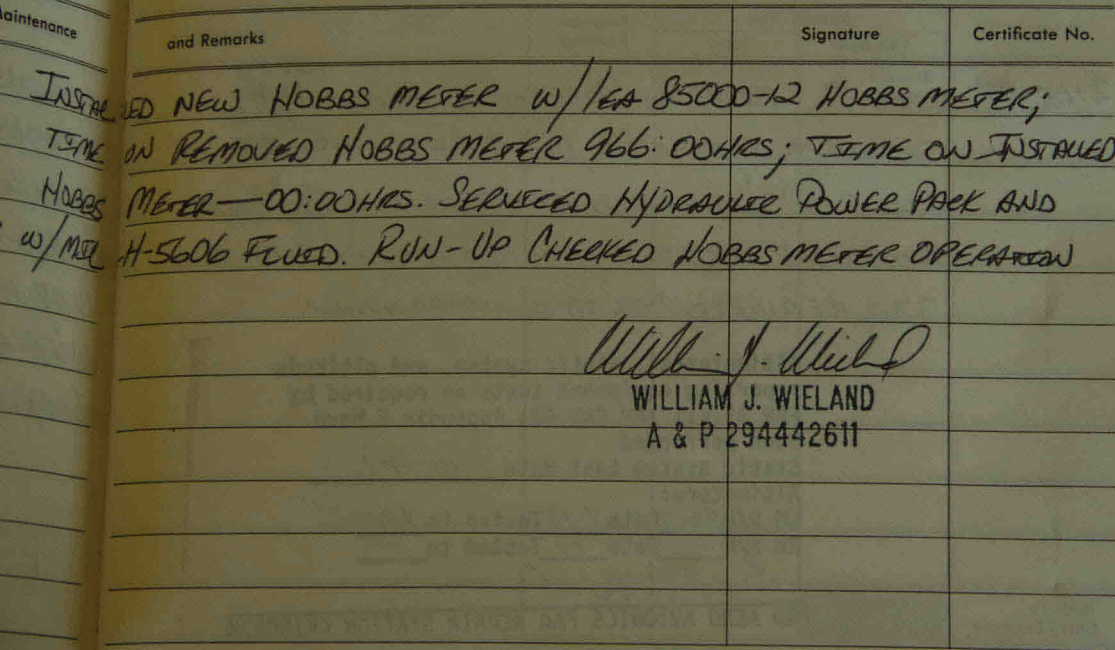 Maintenance and Remarks Signature Certificate No.
INSTALLED NEW HOBBS METER W/1EA 85000-12 HOBBS METER;
TIME ON REMOVED HOBBS METER 966:00HRS; TIME ON INSTALLED
HOBBS METER—00:00HRS. SERVICED HYDRAULIC POWER PACK AND
W/MIL H-5606 FLUID. RUN-UP CHECKED HOBBS METER OPERATION
William J. Wieland
WILLIAM J. WIELAND
A & P 294442611